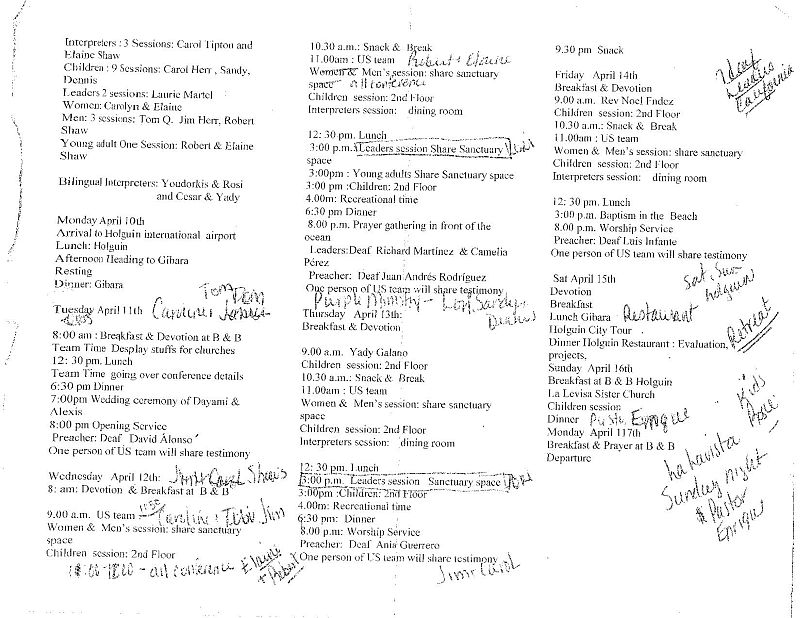 Interpreters : 3 Sessions: Carol Tipton and
Elaine Shaw
Children : 9 Sessions: Carol Herr , Sandy,
Dennis
Leaders 2 sessions: Laurie Martel
Women: Carolyn & Elaine
Men: 3 sessions: Tom Q. Jim Herr, Robert
Shaw
Young adult One Session: Robert & Elaine
Shaw
Bilingual Interpreters: Youdorkis & Rosi
and Cesar & Yady
Monday April 10th
Arrival to Holguin international airport
Lunch: Holguin
Afternoon Heading to Gibara
Resting
Dinner: Gibara
Tom
Tuesday April 11th
8:00 am : Breakfast & Devotion at B & B
Team Time Desplay stuffs for churches
12: 30 pm. Lunch
Team Time going over conference details
6:30 pm Dinner
7:00pm Wedding ceremony of Dayami &
Alexis
8:00 pm Opening Service
Preacher: Deaf David Alonso
One person of US team will share testimony
Wednesday April 12th: Carol
8: am: Devotion & Breakfast at B & B
9.00 am. US team Jim
Women & Men's session: share sanctuary
space
Children session: 2nd Floor
- all conference Elaine
+ Robert
10.30 a.m.: Snack & Break
11.00am : US team Robert + Elaine
Women & Men's session: share sanctuary
space all conference
Children session: 2nd Floor
Interpreters session: dining room
12: 30 pm. Lunch
3:00 p.m. Leaders session Share Sanctuary
space
3:00pm : Young adults Share Sanctuary space
3:00 pm :Children: 2nd Floor
4.00m: Recreational time
6:30 pm Dinner
8.00 p.m. Prayer gathering in front of the
ocean
Leaders:Deaf Richard Martínez & Camelia
Pérez
Preacher: Deaf Juan Andrés Rodríguez
One person of US team will share testimony
Purple Ministry - Sandy
Dennis
Thursday April 13th:
Breakfast & Devotion
9.00 a.m. Yady Galano
Children session: 2nd Floor
10.30 a.m.: Snack & Break
11.00am : US team
Women & Men's session: share sanctuary
space
Children session: 2nd Floor
Interpreters session: dining room
12: 30 pm. Lunch
3:00 p.m. Leaders session Sanctuary space
3:00pm :Children: 2nd Floor
4.00m: Recreational time
6:30 pm: Dinner
8.00 p.m: Worship Service
Preacher: Deaf Ania Guerrero
One person of US team will share testimony
Jim + Carol
9.30 pm Snack
Friday April 14th
Breakfast & Devotion
9.00 a.m. Rev Noel Fndez
Children session: 2nd Floor
10.30 a.m.: Snack & Break
11.00am : US team
Women & Men's session: share sanctuary
Children session: 2nd Floor
Interpreters session: dining room
Deaf
California
12: 30 pm. Lunch
3:00 p.m. Baptism in the Beach
8.00 p.m. Worship Service
Preacher: Deaf Luis Infante
One person of US team will share testimony
Sat April 15th
Devotion
Breakfast
Lunch Gibara Restaurant
Holguin City Tour
Dinner Holguin Restaurant : Evaluation,
projects,
Sat. Sun
holguin
Retreat
Sunday April 16th
Breakfast at B & B Holguin
La Levisa Sister Church
Children session
Dinner Enrique
Monday April 117th
Breakfast & Prayer at B & B
Departure
Kids
Sunday night
Pastor
Enrique